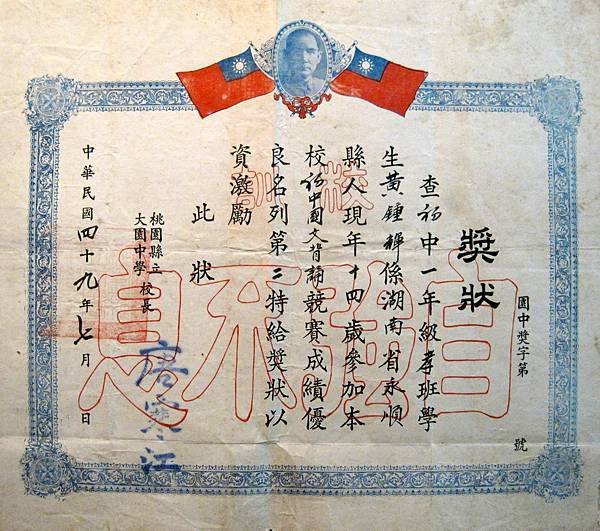 獎狀
園中獎字第　號
查初中一年級孝班學
生黃鍾靜係湖南省永順
縣人現年十四歲參加本
校初中國文背誦競賽成績優
良名列第二特給獎狀以
資激勵
此狀
桃園縣立
大園中學
校長
唐寒江
中華民國四十九年七月　日
校訓
自強不息